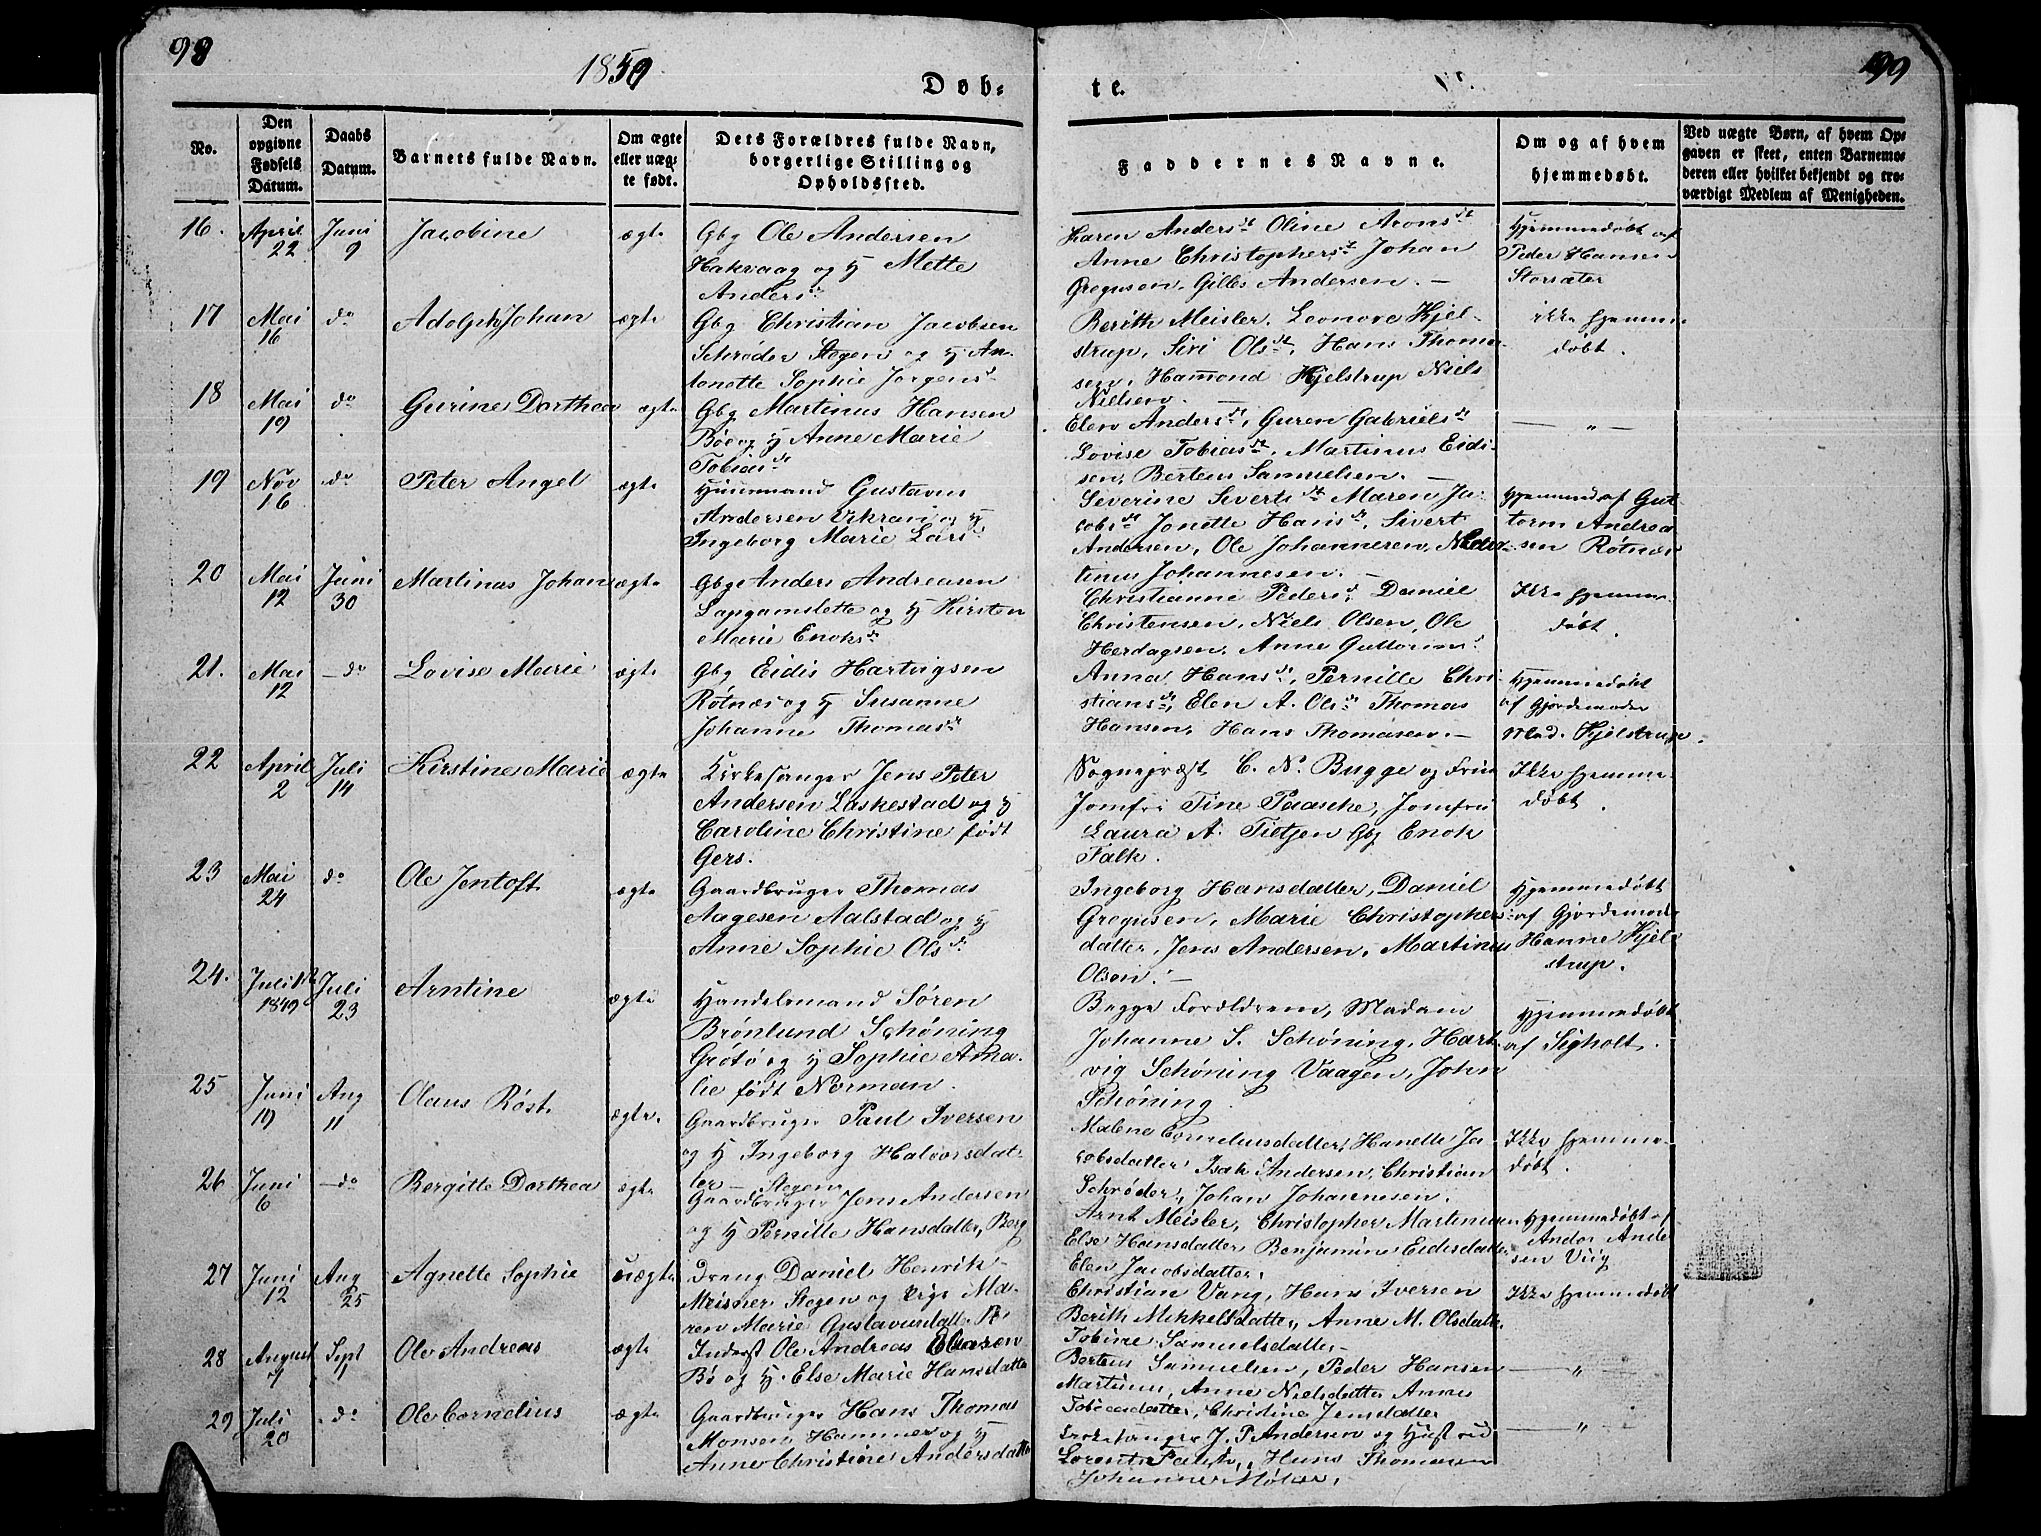 98
1850
99
Døb-
te.
No.
Den opgivne Fødsels Datum.
Daabs Datum.
Barnets fulde Navn.
Om ægte eller uægte født.
Dets Forældres fulde Navn, borgerlige Stilling og Opholdssted.
Faddernes Navne.
Om og af hvem hjemmedøbt.
Ved uægte Børn, af hvem Opgaven er skeet, enten Barnemoderen eller hvilket bekjendt og troværdigt Medlem af Menigheden.
16.
April 22
Juni 9
Jacobine
ægte
Gbg Ole Andersen
Hakvaag og H Mette
Andersdt
Karen Andersdt Oline Aronsdt
Anne Christophersdt Johan
Gregusen, Gilles Andersen. —
Hjemmedøbt af
Peder Hansen
Storsæter
17
Mai 16
do
Adolph Johan
ægte
Gbg Christian Jacobsen
Schrøder Stegen og H An-
tonette Sophie Jørgensdt
Berith Meisler, Leonora Kjel-
strup, Siri Olsdt, Hans Thoma-
sen, Hammond Kjelstrup Niels
Nielsen. —
ikke hjemme-
døbt.
18
Mai 19
do
Gurine Dorthea
ægte
Gbg Martinus Hansen
Bø og H Anne Marie
Tobiasdt
Elen Andersdt, Guren Gabrielsdt
Lovise Tobiasdt, Martinus Eidi-
sen, Berteus Samuelsen. —
— " —
19
Nov 16
do
Peter Angel
ægte
Huusmand Gustavus
Andersen og H
Ingeborg Marie Larsdt
Severine Sivertsdt Maren Ja-
cobsdt Jonette Hansdt, Sivert
Andersen, Ole Johannesen, Mar-
tinus Johannesen. —
Hjemmed af Gut-
torm Andrea-
sen Røtnæs
20
Mai 12
Juni 30
Martinus Johan
ægte
Gbg Anders Andreasen
Lapgamslette og H Kirsten
Marie Enoksdt
Christianne Pedersdt, Daniel
Christensen, Niels Olsen, Ole
Herdagsen, Anne Guttormsdt
Ikke hjemme-
døbt.
21.
Mai 12
— do
Lovise Marie
ægte
Gbg Eidis Hartvigsen
Røtnæs og H Susanne
Johanne Thomasdt
Anna Hansdt, Pernille Chri-
stiansdt, Elen A. Olsdt Thomas
Hansen, Hans Thomasen. —
Hjemmedøbt
af Gjordemoder
Mad. Kjelstrup.
22
April 2
Juli 14
Kirstine Marie
ægte
Kirkesanger Jens Peter
Andersen Laskestad og H
Caroline Christine født
Gers.
Sognepræst C. N. Bugge og Frue
Jomfru Tine Paasche, Jomfru
Laura A. Tietjen Gbg Enok
Falk.
Ikke hjemme-
døbt.
23
Mai 24
do
Ole Jentoft
ægte
Gaardbruger Thomas
Aagesen Aalstad og H
Anne Sophie Olsdt
Ingeborg Hansdatter, Daniel
Gregusen, Marie Christophers-
datter, Jens Andersen, Martinus
Olsen. —
Hjemmedøbt
af Gjordemode
Hanne Kjel-
strup.
24.
Juli 1849
Juli 23
Arntine
ægte
Handelsmand Søren
Brønlund Schøning
Grøtø og H Sophie Ama-
lie født Norman.
Begge Forældrene, Madam
Johanne S. Schøning, Hart-
vig Schøning Vaagen, John
Schøning.
Hjemmedøbt
af Sigholt.
25
Juni 19
Aug 11
Olaus Røst
ægte.
Gaardbruger Paul Iversen
og H Ingeborg Halvorsdat-
ter — Stegen
Malene Corneliusdatter, Hanette Ja-
cobsdatter Isak Andersen, Christian
Schrøder, Johan Johannesen.
Ikke hjemme-
døbt.
26
Juni 6
— do
Bergitte Dorthea
ægte
Gaardbruger Jens Andersen
og H Pernille Hansdatter, Berg
Arnt Meisler, Christopher Martinusen
Else Hansdatter Benjamine Eidisdatter
Elen Jacobsdatter.
Hjemmedøbt af
Andor Ande
sen Viig
27
Juni 12
Aug 25
Agnette Sophie
uægte
Dreng Daniel Henrik
Meisner Stegen og Pige Ma-
ren Marie Gustavusdatter
Christian Vang, Hans Iversen
Berith Mikkelsdatter, Anne M. Olsdatter
Tobine Samuelsdatter. —
Ikke hjemmedøbt
28
August 9
Sept
Ole Andreas
ægte
Inderst Ole Andreas
Bø og H. Else Marie Hansdatter
Berteus Samuelsen, Peder Hansen
Martinus, Anne Nielsdatter Anne
Tobiasdatter, Christine Jensdatter
— " —
29
Juli 20
do
Ole Cornelius
ægte
Gaardbruger Hans Thomas
Monsen Hammer og H
Anne Christine Andersdatter
Kirkesanger J. P. Andersen og Hustrue
Lorents Falch, Hans Thomasen
Johanne Møller.
— " —